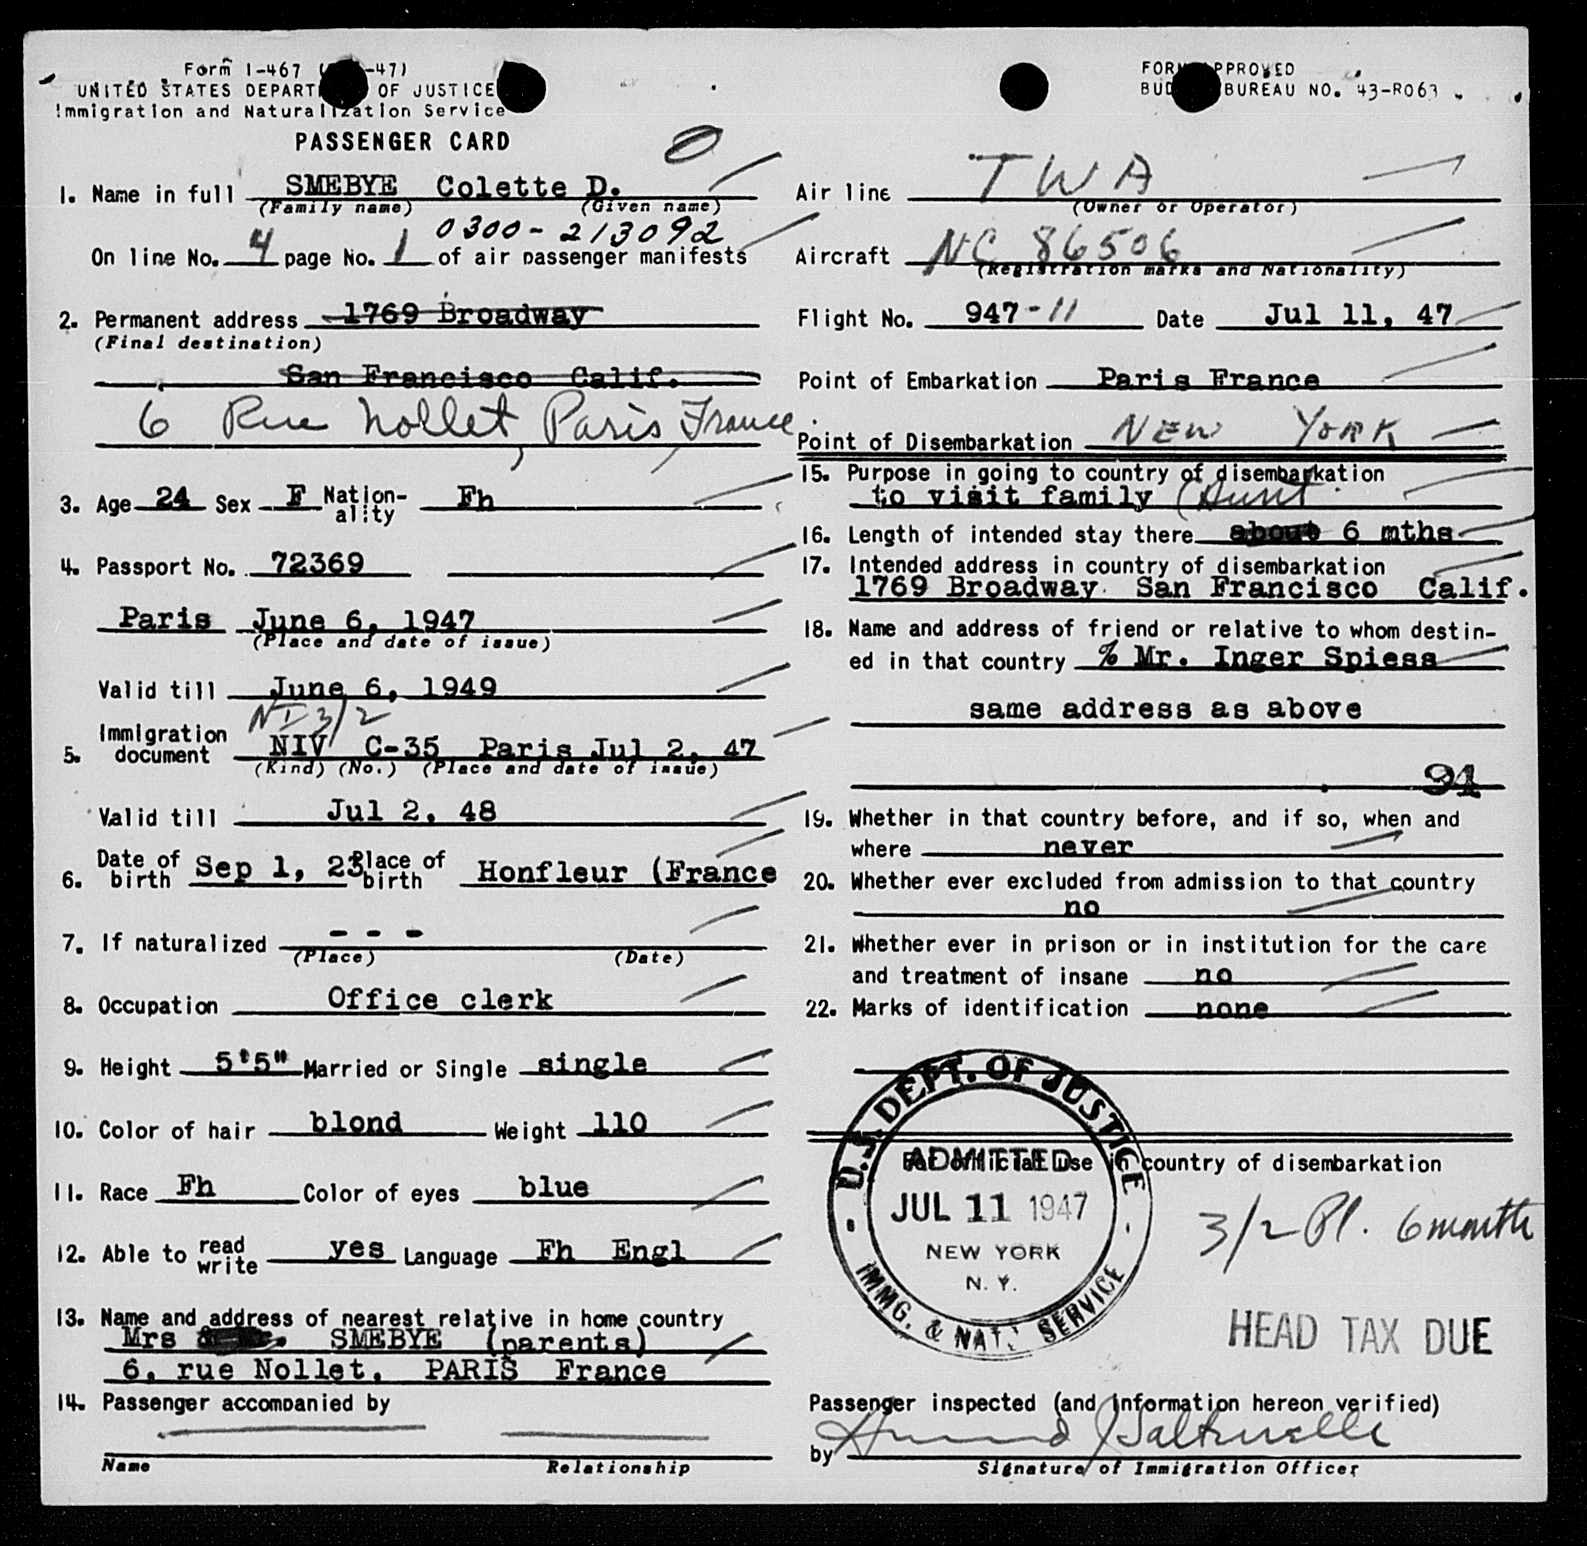 Form I-467 ( -47)
UNITED STATES DEPART OF JUSTICE
Immigration and Naturalization Service
PASSENGER CARD
FORM APPROVED
BUD BUREAU NO. 43-R063
0
1. Name in full SMEBYE Colette D.
(Family name) (Given name)
0300-213092
On line No. 4 page No. 1 of air passenger manifests
2. Permanent address 1769 Broadway
(Final destination)
San Francisco Calif.
6 Rue Nollet, Paris, France
3. Age 24 Sex F Nation-ality Fh
4. Passport No. 72369
Paris June 6, 1947
(Place and date of issue)
Valid till June 6, 1949
NI 3/2
5. Immigration document NIV C-35 Paris Jul 2, 47
(Kind) (No.) (Place and date of issue)
Valid till Jul 2, 48
6. Date of birth Sep 1, 23 Place of birth Honfleur (France
7. If naturalized - - -
(Place) (Date)
8. Occupation Office clerk
9. Height 5'5" Married or Single single
10. Color of hair blond Weight 110
11. Race Fh Color of eyes blue
12. Able to read write yes Language Fh Engl
13. Name and address of nearest relative in home country
Mrs SMEBYE (parents)
6, rue Nollet, PARIS France
14. Passenger accompanied by
Name Relationship
Air line TWA
(Owner or Operator)
Aircraft NC 86506
(Registration marks and Nationality)
Flight No. 947-11 Date Jul 11, 47
Point of Embarkation Paris France
Point of Disembarkation NEW YORK
15. Purpose in going to country of disembarkation
to visit family (Aunt
16. Length of intended stay there about 6 mths
17. Intended address in country of disembarkation
1769 Broadway San Francisco Calif.
18. Name and address of friend or relative to whom destin-
ed in that country % Mr. Inger Spiess
same address as above
91
19. Whether in that country before, and if so, when and
where never
20. Whether ever excluded from admission to that country
no
21. Whether ever in prison or in institution for the care
and treatment of insane no
22. Marks of identification none
For official use in country of disembarkation
U.S. DEPT. OF JUSTICE
ADMITTED
JUL 11 1947
NEW YORK
N. Y.
IMMG. & NAT. SERVICE
3/2 Pl. 6 months
HEAD TAX DUE
Passenger inspected (and information hereon verified)
by
Signature of Immigration Officer